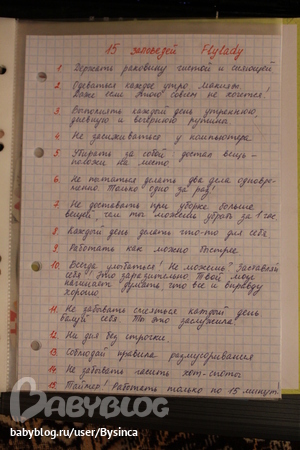 15 заповедей Flylady
1. Держать раковину чистой и сияющей
2. Одеваться каждое утро, макияж.
Даже если этого совсем не хочется!
3. Выполнять каждый день утреннюю,
дневную и вечернюю рутины
4. Не засиживаться у компьютера
5. Убирать за собой, достал вещь -
положи на место
6. Не пытаться делать два дела одновре-
менно. Только одно за раз!
7. Не доставать при уборке больше
вещей, чем ты можешь убрать за 1 час
8. Каждый день делать что-то для себя
9. Работать как можно быстрее
10. Всегда улыбаться! Не можешь? Заставляй
себя! Это заразительно. Твой мозг
начинает думать что все и вправду
хорошо
11. Не забывать смеяться каждый день
балуй себя. Ты это заслужила!
12. Ни дня без стирки
13. Соблюдай правила размусоривания
14. Не забывать гасить хот-споты
15. Таймер! Работать только по 15 минут
BABYBLOG
babyblog.ru/user/Bysinca